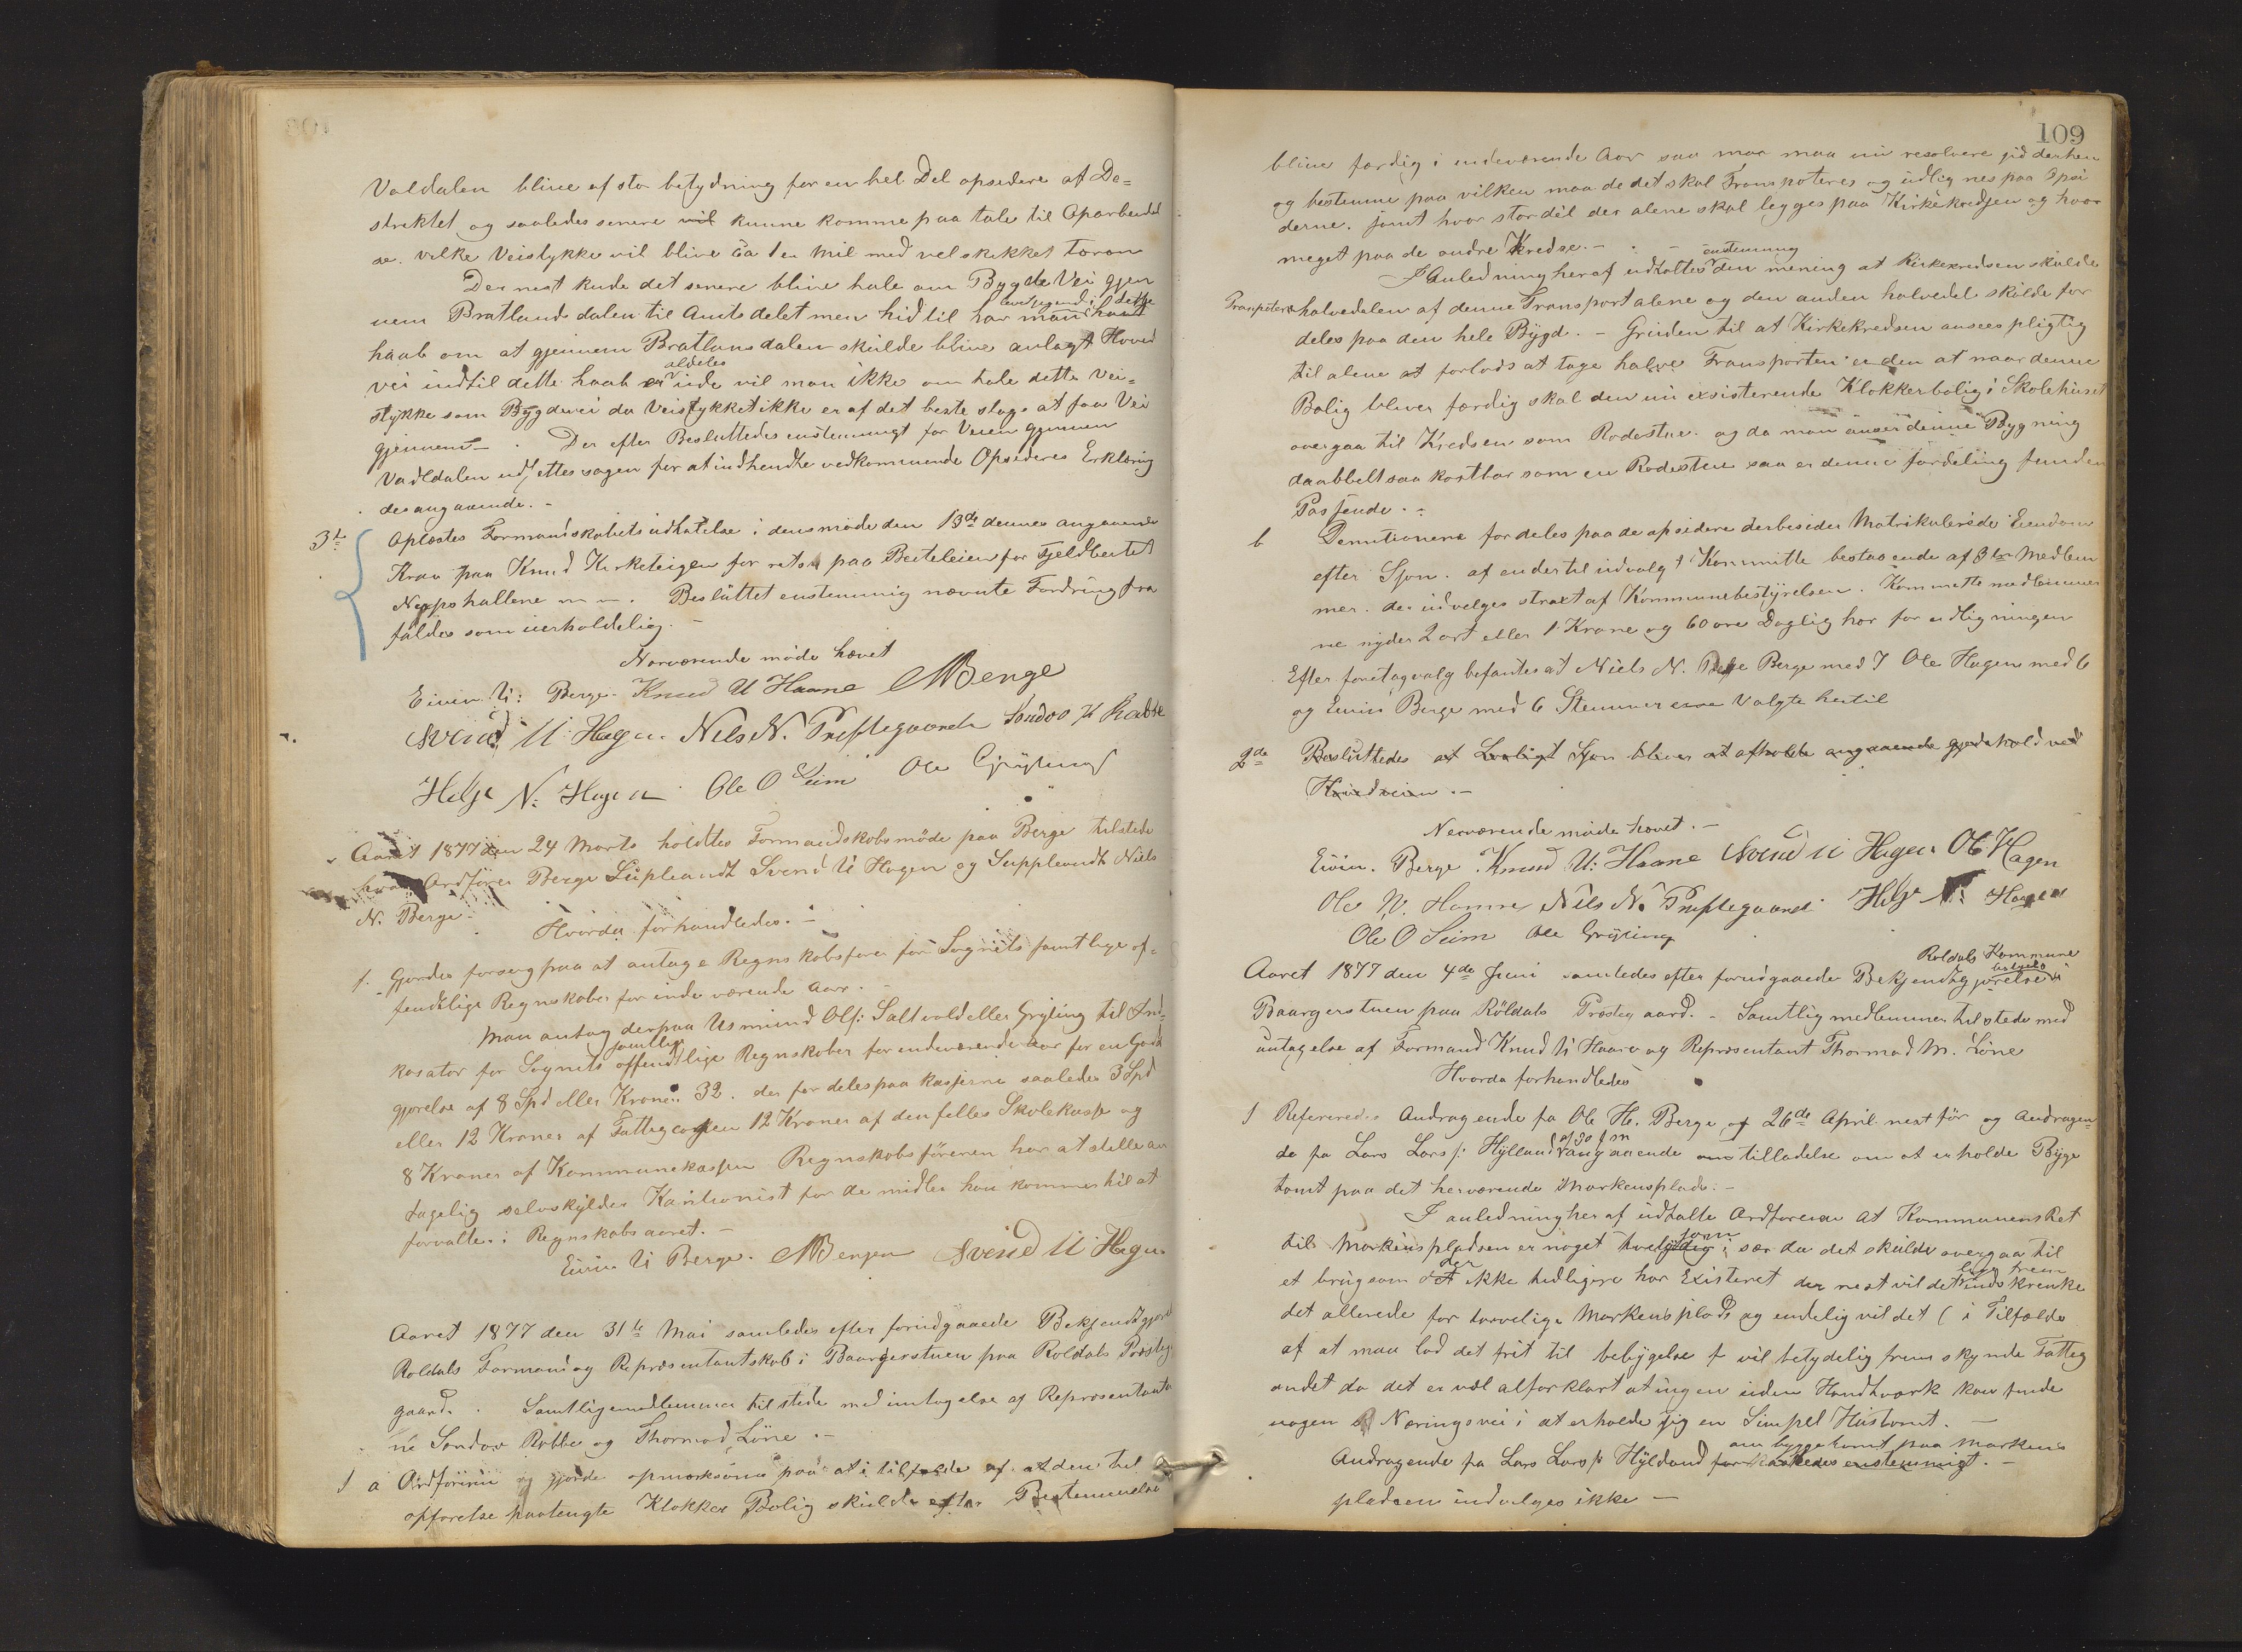 Valdalen blive af stor betydning for en hel Del opsidere af De=
striktet og saaledes senere vil kunne komme paa tale til Oparbeidel
se. vilke Veistykke vil blive ca 1 en Mil med vel skikket toron
Der nest kude det senere blive tale om Bygde Vei gjen
nem Bratlands dalen til Amtsdelet men hidtil har man havt
haab om at gjennem Bratlansdalen skulde blive anlagt Hoved
aldeles
vei indtil dette haab er ude vil man ikke om tale dette Vei=
stykke som Bygdevei da Veistykket ikke er af det beste slags at faa Vei
gjennem — . Der efter Besluttedes enstemmigt for Veien gjennem
Valdalen udsettes sagen for at indhendte vedkommende Opsideres Erklæring
desangaaende. –
3te Oplæstes Formandskabets udtalelse i dens møde den 13de dennes angaaende
Krav paa Knud Kirketeigen for retten paa Beiteleien for Fjeldbeitet
Nupshallene — . Besluttet enstemmig nævnte Fordring fra
faldes som uerholdelig. –
Nærværende møde hævet
Eivin U: Berge. Knud U Haane NNBerge
Svend U Hagen Nils N. Prestegaarde Sondov H Rabbe
Helge N: Hagen Ole O Seim Ole Gryting
Aaret 1877 den 24 Marts holdtes Formandskabsmøde paa Berge tilstede
hvor Ordfører Berge Supleandt Svend U Hagen og Suppleandt Niels
N. Berge. Hvorda forhandledes. –
1. Gjordes forsøg paa at antage Regnskabsfører for Sognets samtlige of=
fendtlige Regnskaber for inde værende Aar. –
Man antog derpaa Asmund Ols: Saltvold eller Gryting til In=
samtlige
kasator for Sognets offendtlige Regnskaber for indeværende Aar for en Godt
gjørelse af 8 Spd eller Kroner 32. der fordeles paa kasserne saaledes 3 Spd
eller 12 Kroner af Fattigcassen 12 Kroner af den felles Skolekasse og
8 Kroner af Kommunekassen Regnskabsføreren har at stille an
tagelig selvskyldes Kautionist for de midler han kommer til at
forvalte i Regnskabsaaret. –
Eivin U Berge. NNBergen Svend U Hagen
Aaret 1877 den 31te Mai samledes efter forudgaaende Bekjendtgjørel
Roldals Formand og Representantskab i Baargerstuen paa Roldals Prestey
gaard. . Samtlige medlemmer tilstede med untagelse af Representante
ne Sondov Rabbe og Thormod Løne. –
1 a Ordføreren gjorde opmerksom paa at i tilfelde af at den til
opførelse paatengte Klokker Bolig skulde efter Bestemmelse
109
blive færdig i indeværende Aar saa man maa nu resolvere sid derhen
og bestemme paa vilken maade det skal Transpoteres og udlignes paa Opsi
derne. samt hvor stor del der alene skal legges paa Kirkekredsen og hvor
meget paa de andre Kredse. – . –
enstemmig
I Anledning heraf udtaltes den mening at Kirkekredsen skulde
Transpotere halvedelen af denne Transport alene og den anden halvedel skulde for
deles paa den hele Bygd. – Grunden til at Kirkekredsen ansees pligtig
til alene at forlods at tage halve Transporten er den at naar denne
Bolig bliver færdig skal den nu exsisterende Klokkerbolig i Skolehuset
overgaa til Kredsen som Rodestue. og da man anser denne Bygning
daabbelt saa kostbar som en Rodestue saa er denne fordeling funden
Passende. –
b fordeles paa de opsidere der besider Matrikulerede Eiendom
efter Sjøn. af en dertil udvalgt Kommitte bestaaende af 3 tre Medlem
mer. der udvelges straxt af Kommunebestyrelsen. Kommette medlemmer
ne nyder 2 ort eller 1 Krone og 60 øre Daglig hver for udligningen
Efter foretag valg befantes at Niels N. Berge med 7 Ole Hagen med 6
og Eivin Berge med 6 Stemmer Valgte hertil
2de Besluttedes at Lovligt Sjøn bliver at afholde angaaende gjerdehold ved
Hovedveien. –
Nerværende møde hævet. –
Eivin. Berge. Knud U: Haane Svend U Hagen Ol H Hagen
Ole N. Hamre Nils N. Prestegaard Helge N: Hagen
Ole O Seim Ole Gryting
Roldals Kommune
bestyrelse
Aaret 1877 den 4de Juni samledes efter forudgaaede Bekjendtgjørelse i
Baargerstuen paa Röldals Prestegaard. – Samtlig medlemmer tilstede med
untagelse af Formand Knud U Haane og Representant Thormod M. Løne
Hvorda forhandledes
1 Refereredes Andragende fra Ole H. Berge af 26de April nest før og Andragen=
de fra Lars Lars s: Hylland angaaende om tilladelse om at erholde Bygge
tomt paa det herværende Markensplads. –
I anledning her af udtalte Ordføreren at Kommunens Ret
til Markenspladsen er noget tvetydig i sær da det skulde overgaa til
et brug som det ikke tidligere har Existeret der nest vil det indskrenke
det allerede for tarvelige Markensplads og endelig vil det ( i Tilfælde
af at man lod det frit til bebygelse ) vil betydelig fremskynde Fattig
andet da det er vel alfor klart at ingen uden Handtværk kan finde
nogen Næringsvei i at erholde sig en Simpel Hustomt. –
om byggetomt paa Markens
Andragende fra Lars Lars s: Hylland forkastedes enstemmigt. –
pladsen indvelges ikke —